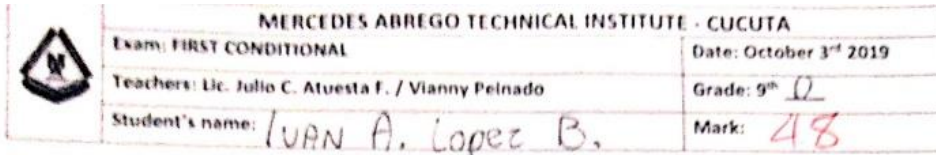 MERCEDES ABREGO TECHNICAL INSTITUTE - CUCUTA
Exam: FIRST CONDITIONAL
Date: October 3rd 2019
Teachers: Lic. Julio C. Atuesta F. / Vianny Peinado
Grade: 9th D
Student's name: IVAN A. Lopez B.
Mark: 48